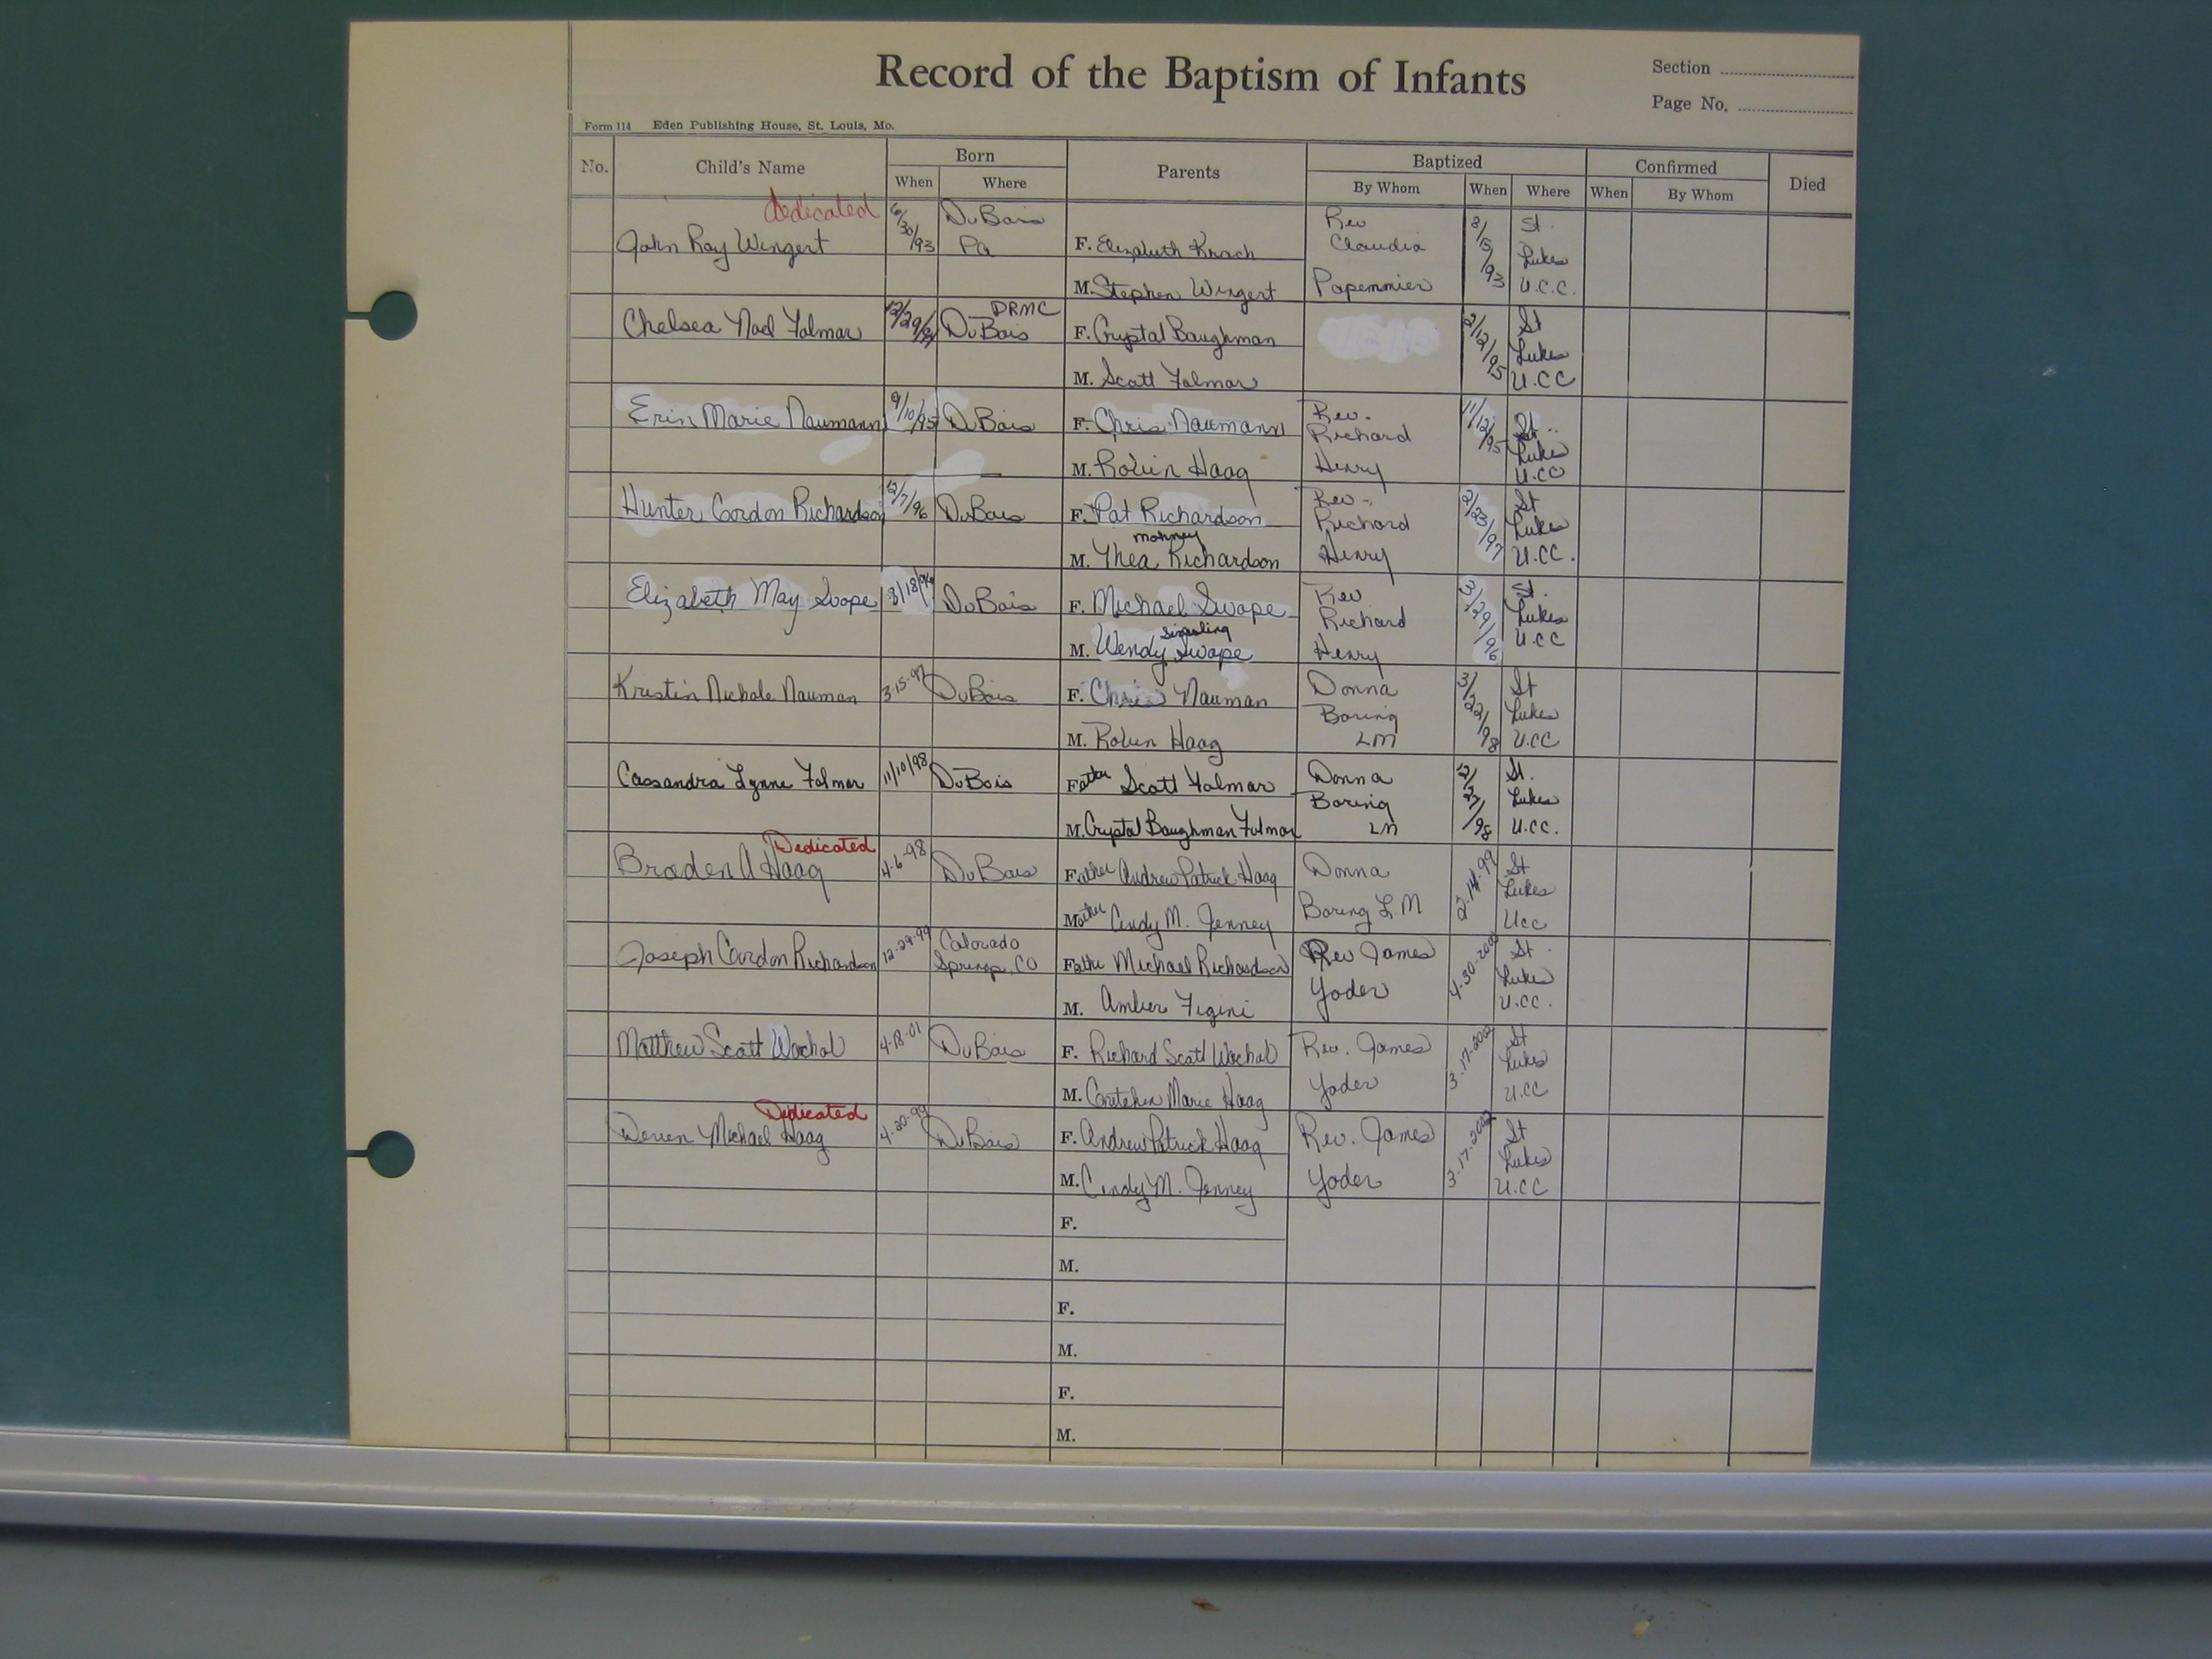 Record of the Baptism of Infants
Section
Page No.
Form 114 Eden Publishing House, St. Louis, Mo.
No. Child's Name Born Parents Baptized Confirmed Died
When Where By Whom When Where When By Whom
Dedicated
John Ray Wingert 6/30/93 DuBois Pa F. Elizabeth Krach Rev Claudia Papemmier /93 St. Lukes U.C.C.
M. Stephen Wingert
Chelsea Noel Folmar 12/29/94 DRMC DuBois F. Crystal Baughman 2/12/95 St Lukes U.CC
M. Scott Folmar
Erin Marie Naumann 9/10/95 DuBois F. Chris Naumann Rev. Richard Henry 11/12/95 St. Lukes U.CC
M. Robin Haag
Hunter Gordon Richardson 12/7/96 DuBois F. Pat Richardson Rev. Richard Henry 2/23/97 St Lukes U.CC.
M. Thea Mohney Richardson
Elizabeth May Swope 3/18/96 DuBois F. Michael Swope Rev Richard Henry 3/29/96 St. Lukes U.CC
M. Wendy Swope
Kristin Nichole Nauman 3-15-97 DuBois F. Chris Nauman Donna Boring LM 3/22/98 St Lukes U.CC
M. Robin Haag
Cassandra Lynne Folmar 11/10/98 DuBois Father Scott Folmar Donna Boring LM 12/27/98 St. Lukes U.CC.
M. Crystal Baughman Folmar
Dedicated
Braden A Haag 4-6-98 DuBois Father Andrew Patrick Haag Donna Boring L.M 2-14-99 St Lukes UCC
Mother Cindy M. Jenney
Joseph Gordon Richardson 12-29-99 Colorado Springs, CO Father Michael Richardson Rev James Yoder 4-30-2000 St. Lukes U.CC.
M. Amber Figini
Matthew Scott Wachob 4-18-01 DuBois F. Richard Scott Wachob Rev. James Yoder 3-17-2002 St Lukes U.CC
M. Gretchen Marie Haag
Dedicated
Michael Haag 4-20-99 DuBois F. Andrew Patrick Haag Rev. James Yoder 3-17-2002 St Lukes U.CC
M. Cindy M. Jenney
F.
M.
F.
M.
F.
M.